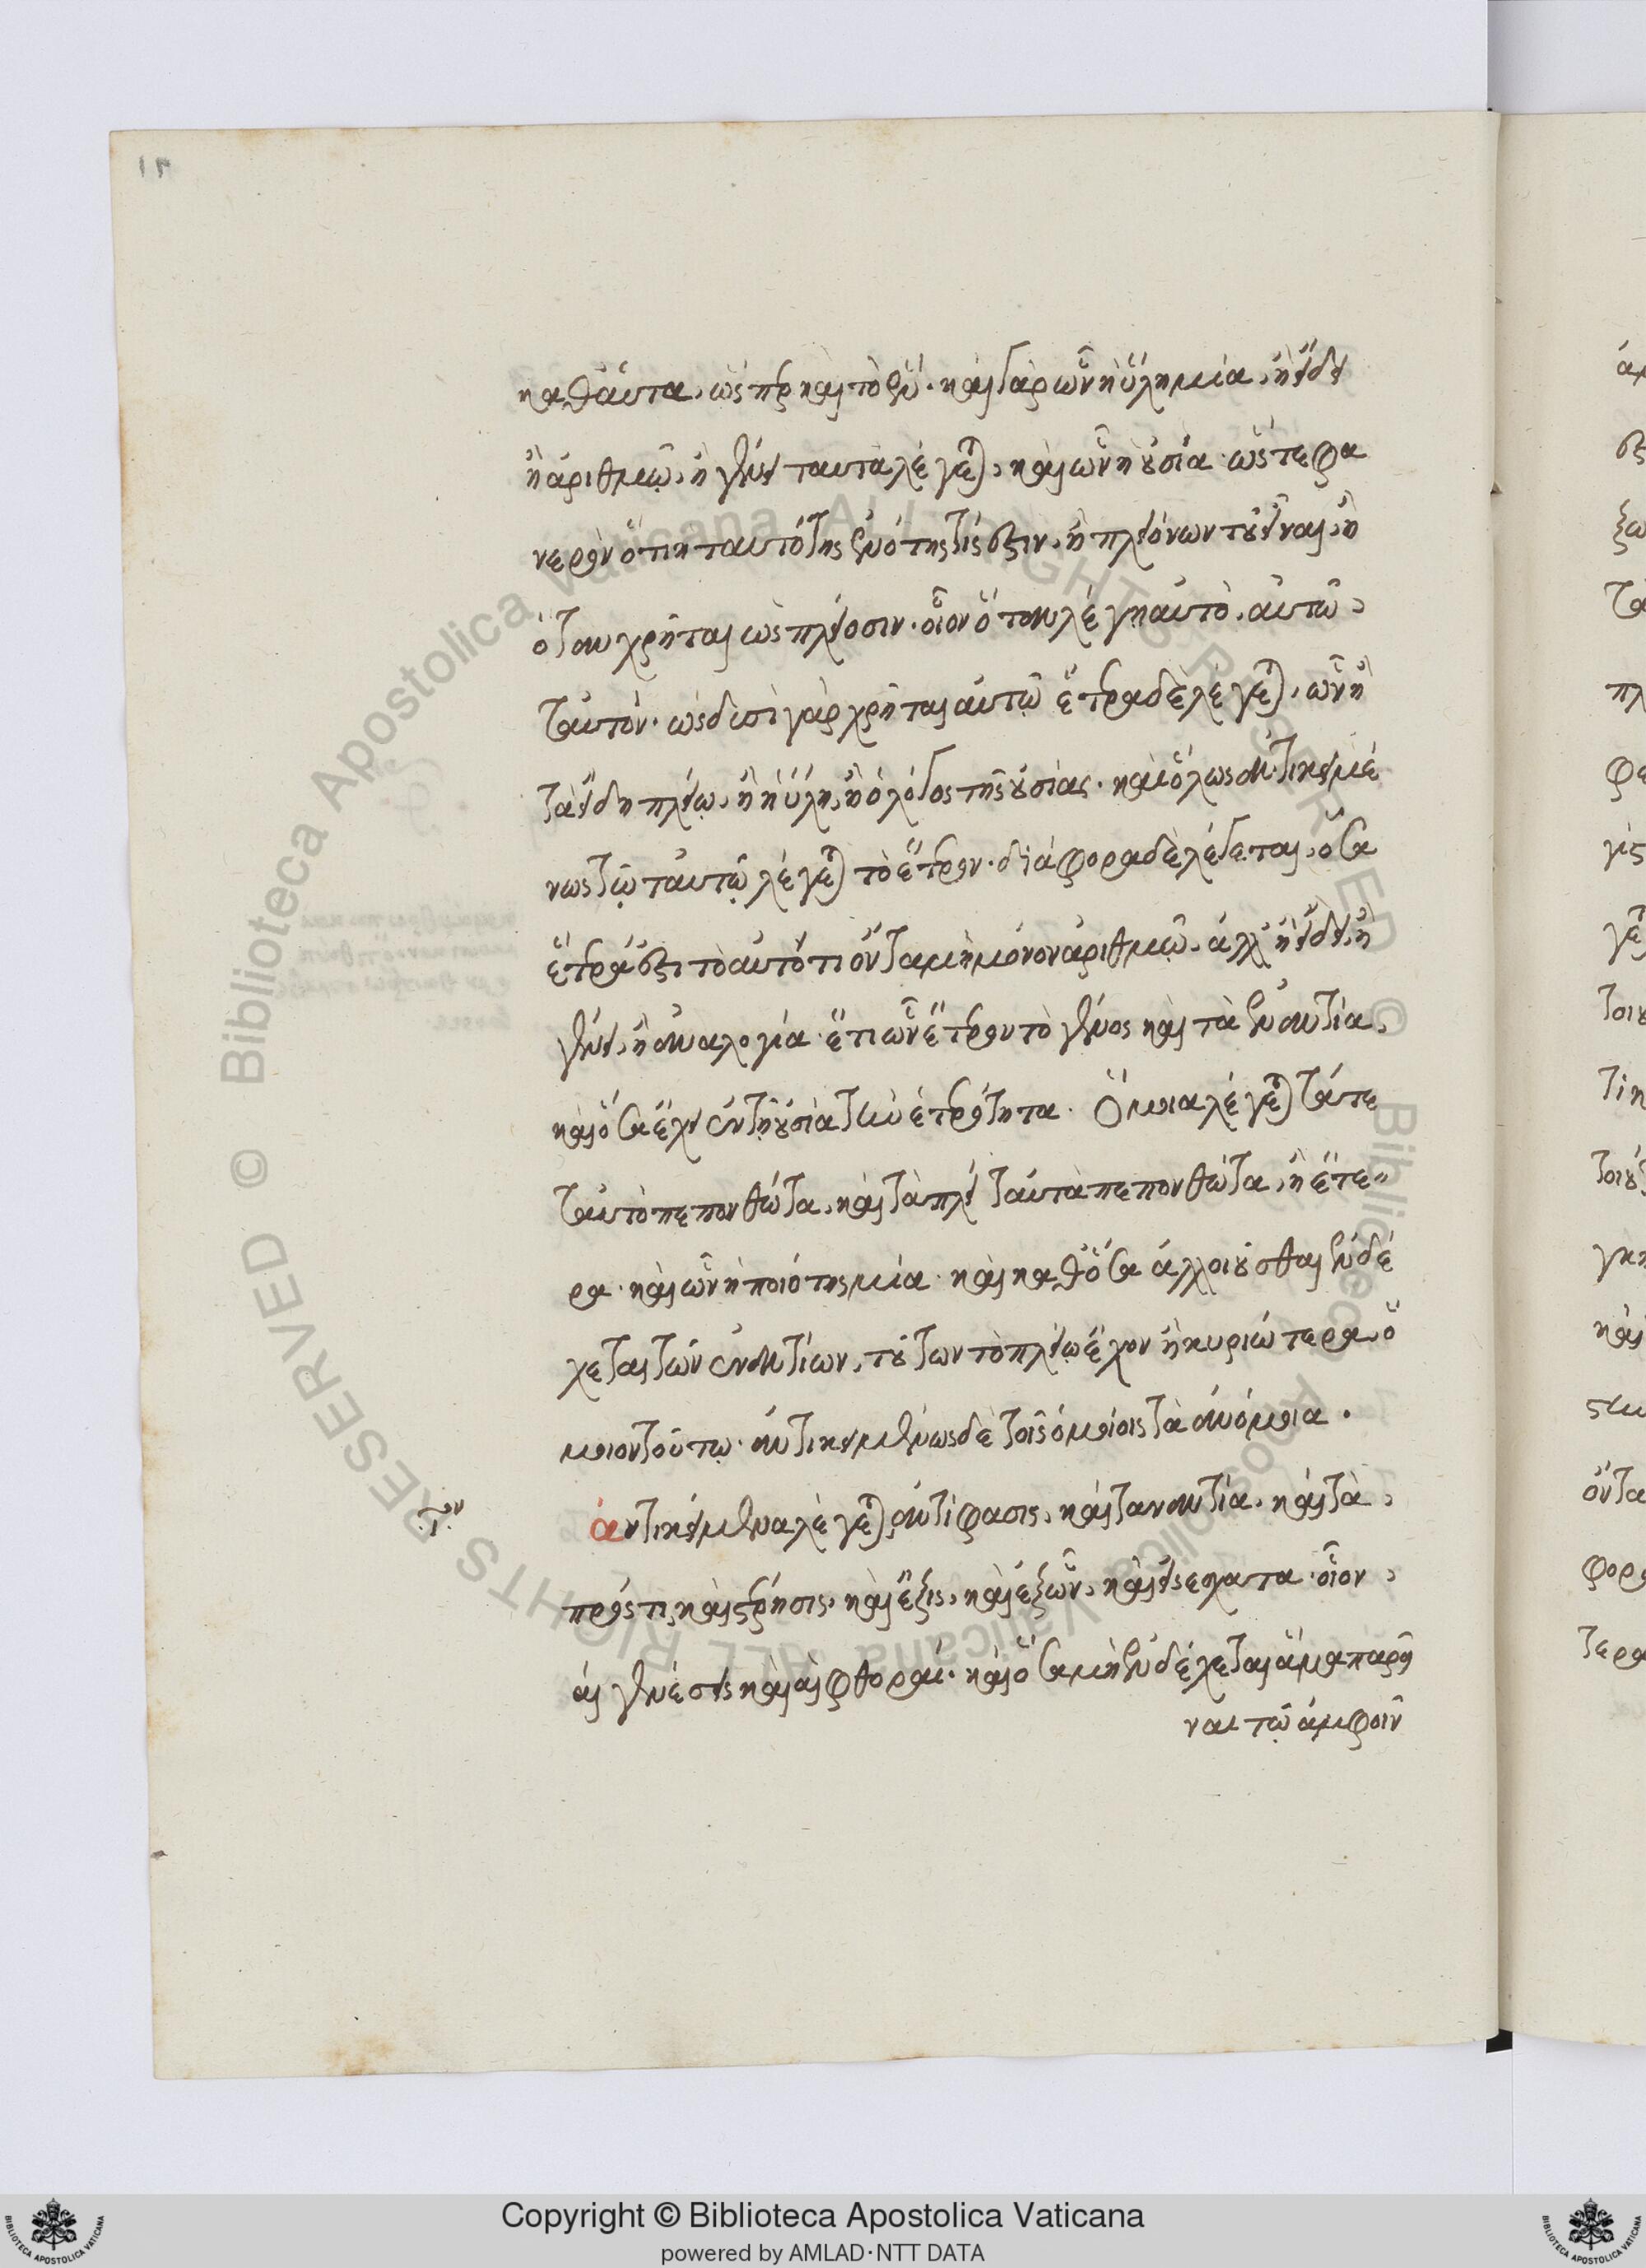 καθ' αὑτά, ὥσπερ καὶ τὸ ἕν· καὶ γὰρ ὧν ἡ ὕλη μία, ἢ εἴδει
ἢ ἀριθμῷ, ἢ γένει ταυτὰ λέγεται, καὶ ὧν ἡ οὐσία· ὥστε φα
νερὸν ὅτι ἡ ταυτότης ἑνότης τίς ἐστιν, ἢ πλειόνων τοῦ εἶναι, ἢ
ὅταν χρῆται ὡς πλείοσιν· οἷον ὅταν λέγῃ αὐτὸ, αὐτῶ
ταὐτόν· ὡς δυσὶ γὰρ χρῆται αὐτῷ ἕτερα δὲ λέγεται, ὧν ἢ
τὰ εἴδη πλείω, ἢ ἡ ὕλη, ἢ ὁ λόγος τῆς οὐσίας· καὶ ὅλως ἀντικειμέ
νως τῷ ταυτῷ λέγεται τὸ ἕτερον· διάφορα δὲ λέγεται, ὅσα
ἕτερά ἐστι τὸ αὐτό τι ὄντα μὴ μόνον ἀριθμῷ· ἀλλ' ἢ εἴδει, ἢ
γένει, ἢ ἀναλογία· ἔτι ὧν ἕτερον τὸ γένος καὶ τὰ ἐναντία,
καὶ ὅσα ἔχει ἐν τῇ οὐσίᾳ τὴν ἑτερότητα. Ὅμοια λέγεται τά τε
ταὐτὸ πεπονθότα, καὶ τὰ πλείω ταὐτὰ πεπονθότα, ἢ ἕτε
ρα· καὶ ὧν ἡ ποιότης μία· καὶ καθ' ὅσα ἀλλοιοῦσθαι ἐνδέ
χεται τῶν ἐναντίων, τούτων τὸ πλείω ἔχον ἢ κυριώτερα, ὅ
μοιον τούτῳ· ἀντικειμένως δὲ τοῖς ὁμοίοις τὰ ἀνόμοια.
ἀντικείμενα λέγεται, ἀντίφασις, καὶ τἀναντία, καὶ τὰ
πρός τι, καὶ στέρησις, καὶ ἕξις, καὶ ἐξ ὧν, καὶ εἰς ἔσχατα· οἷον
αἱ γενέσεις καὶ αἱ φθοραί· καὶ ὅσα μὴ ἐνδέχεται ἅμα παρεῖ
ναι τῷ ἀμφοῖν